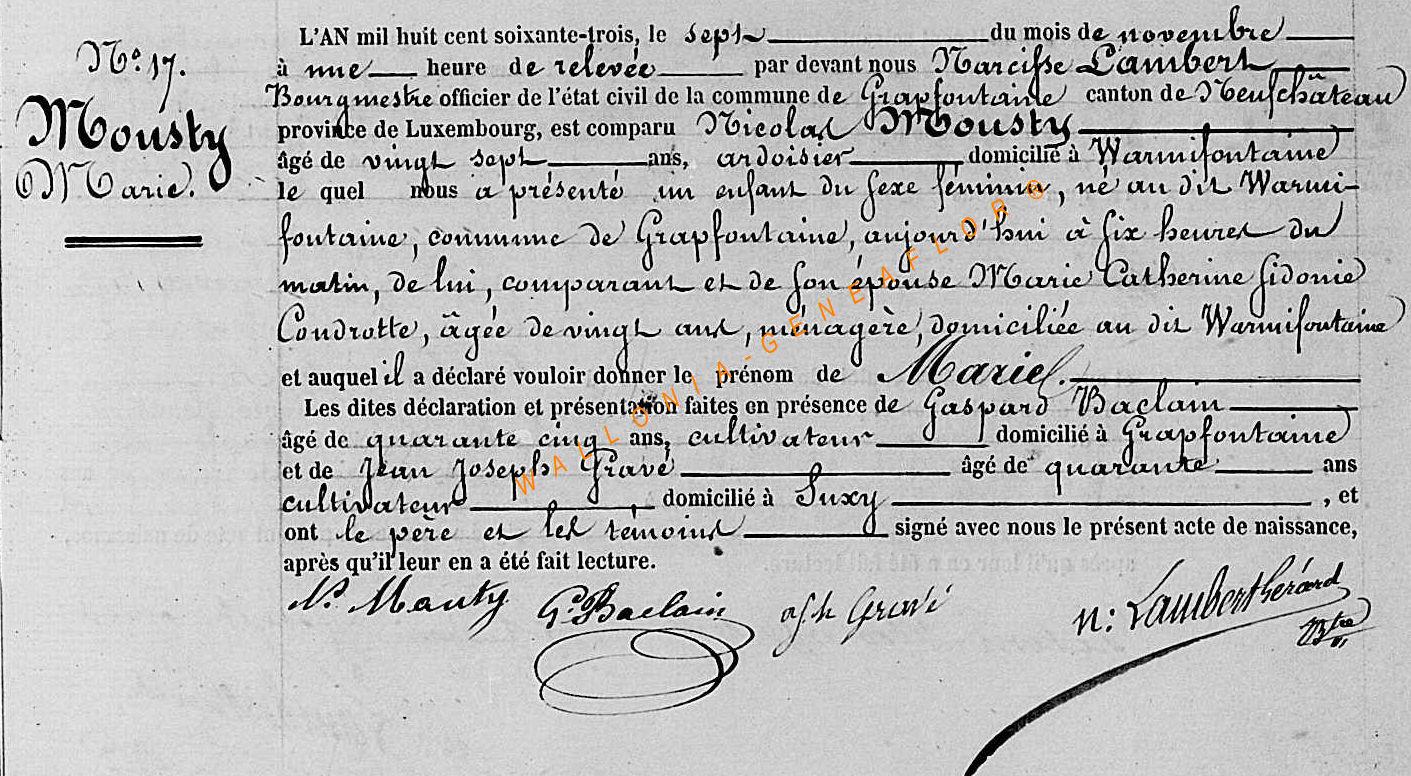 N° 17.
Mousty
Marie.
L'AN mil huit cent soixante-trois, le sept du mois de novembre
à une heure de relevée par devant nous Narcisse Lambert
Bourgmestre officier de l'état civil de la commune de Grapfontaine canton de Neufchâteau
province de Luxembourg, est comparu Nicolas Mousty
âgé de vingt sept ans, ardoisier domicilié à Warmifontaine
le quel nous a présenté un enfant du sexe féminin, né au dit Warmi-
fontaine, commune de Grapfontaine, aujourd'hui à six heures du
matin, de lui, comparant et de son épouse Marie Catherine Sidonie
Condrotte, âgée de vingt ans, ménagère, domiciliée au dit Warmifontaine
et auquel il a déclaré vouloir donner le prénom de Marie.
Les dites déclaration et présentation faites en présence de Gaspard Baclain
âgé de quarante cinq ans, cultivateur domicilié à Grapfontaine
et de Jean Joseph Gravé âgé de quarante ans
cultivateur, domicilié à Suxy, et
ont le père et les témoins signé avec nous le présent acte de naissance,
après qu'il leur en a été fait lecture.
N. Mouty G. Baclain Gravé n: Lambert herard
Btre
WALLONIA-GENEAFLORO